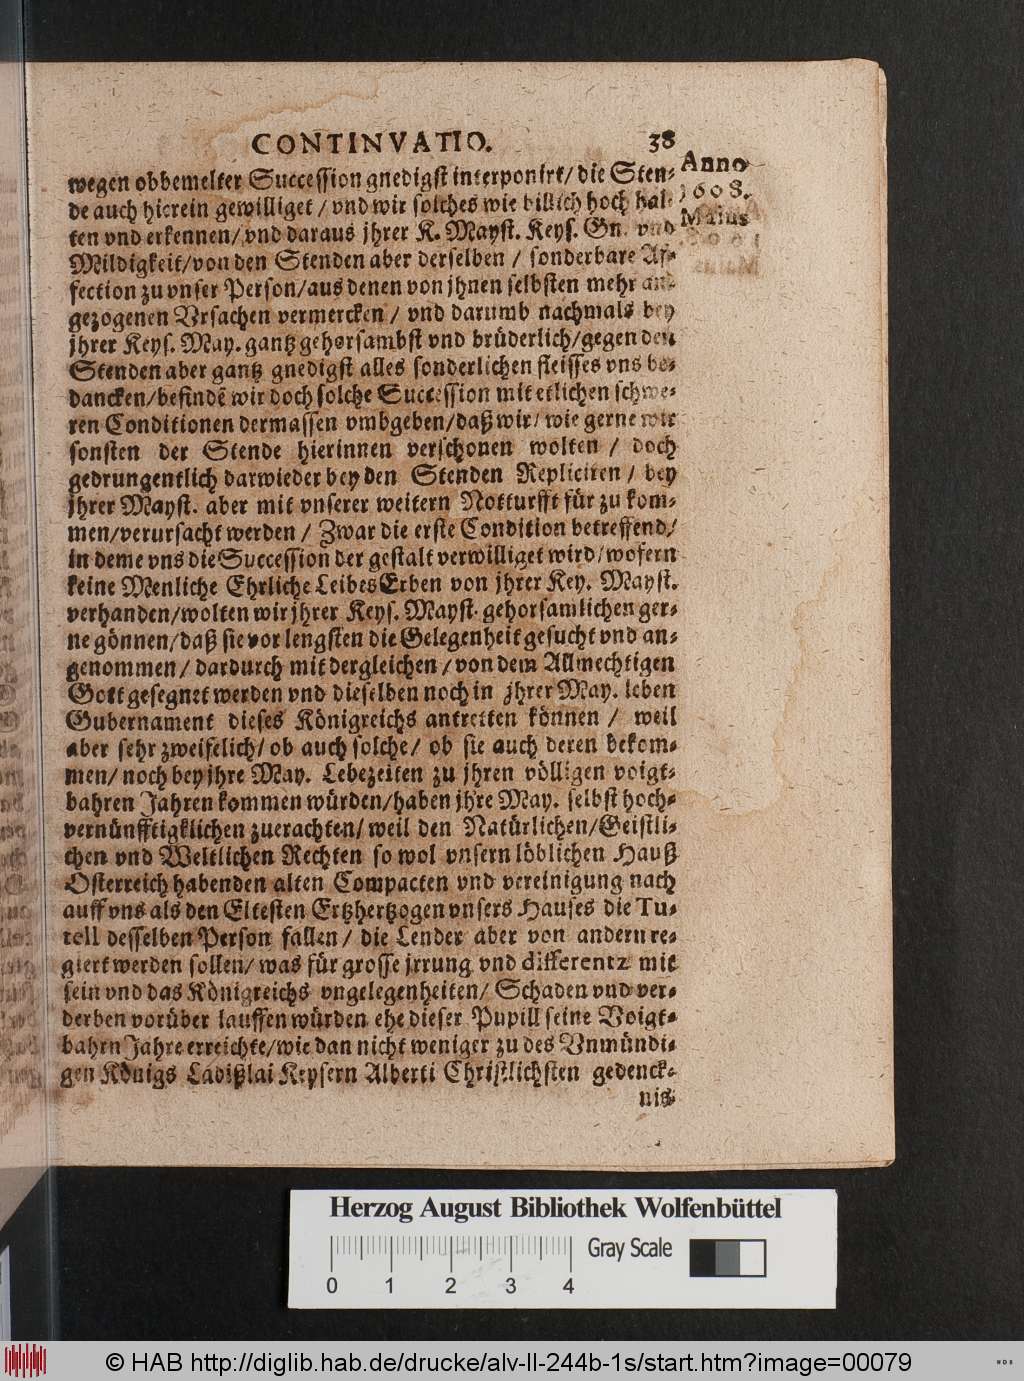 CONTINVATIO. 38
Anno
1608.
Maius
wegen obbemelter Succession gnedigst interponirt/ die Sten-
de auch hierein gewilliget / vnd wir solches wie billich hoch hal-
ten vnd erkennen/ vnd daraus jhrer K. Mayst. Keys. Gn. vnd
Mildigkeit/von den Stenden aber derselben / sonderbare Af-
fection zu vnser Person/aus denen von jhnen selbsten mehr an-
gezogenen Vrsachen vermercken / vnd darumb nachmals bey
jhrer Keys. May. gantz gehorsambst vnd brüderlich/gegen den
Stenden aber gantz gnedigst alles sonderlichen fleisses vns be-
dancken/befindē wir doch solche Succession mit etlichen schwe-
ren Conditionen dermassen vmbgeben/daß wir/ wie gerne wir
sonsten der Stende hierinnen verschonen wolten / doch
gedrungentlich darwieder bey den Stenden Repliciren / bey
jhrer Mayst. aber mit vnserer weitern Notturfft für zu kom-
men/verursacht werden / Zwar die erste Condition betreffend/
in deme vns die Succession der gestalt verwilliget wird/wofern
keine Menliche Ehrliche LeibesErben von jhrer Key. Mayst.
verhanden/wolten wir jhrer Keys. Mayst. gehorsamlichen ger-
ne gönnen/daß sie vor lengsten die Gelegenheit gesucht vnd an-
genommen / dardurch mit dergleichen / von dem Allmechtigen
Gott gesegnet werden vnd dieselben noch in jhrer May. leben
Gubernament dieses Königreichs antretten können / weil
aber sehr zweifelich/ ob auch solche/ ob sie auch deren bekom-
men/ noch bey jhre May. Lebezeiten zu jhren völligen voigt-
bahren Jahren kommen würden/haben jhre May. selbst hoch-
vernünfftigklichen zuerachten/ weil den Natürlichen/Geistli-
chen vnd Weltlichen Rechten so wol vnsern löblichen Hauß
Osterreich habenden alten Compacten vnd vereinigung nach
auff vns als den Eltesten Ertzhertzogen vnsers Hauses die Tu-
tell desselben Person fallen / die Lender aber von andern re-
giert werden sollen/ was für grosse jrrung vnd differentz mit
sein vnd das Königreichs vngelegenheiten/ Schaden vnd ver-
derben vorüber lauffen würden ehe dieser Pupill seine Voigt-
bahrn Jahre erreichte/wie dan nicht weniger zu des Vnmündi-
gen Königs Ladißlai Keysern Alberti Christlichsten gedenck-
nis
Herzog August Bibliothek Wolfenbüttel
Gray Scale
0 1 2 3 4
© HAB http://diglib.hab.de/drucke/alv-ll-244b-1s/start.htm?image=00079